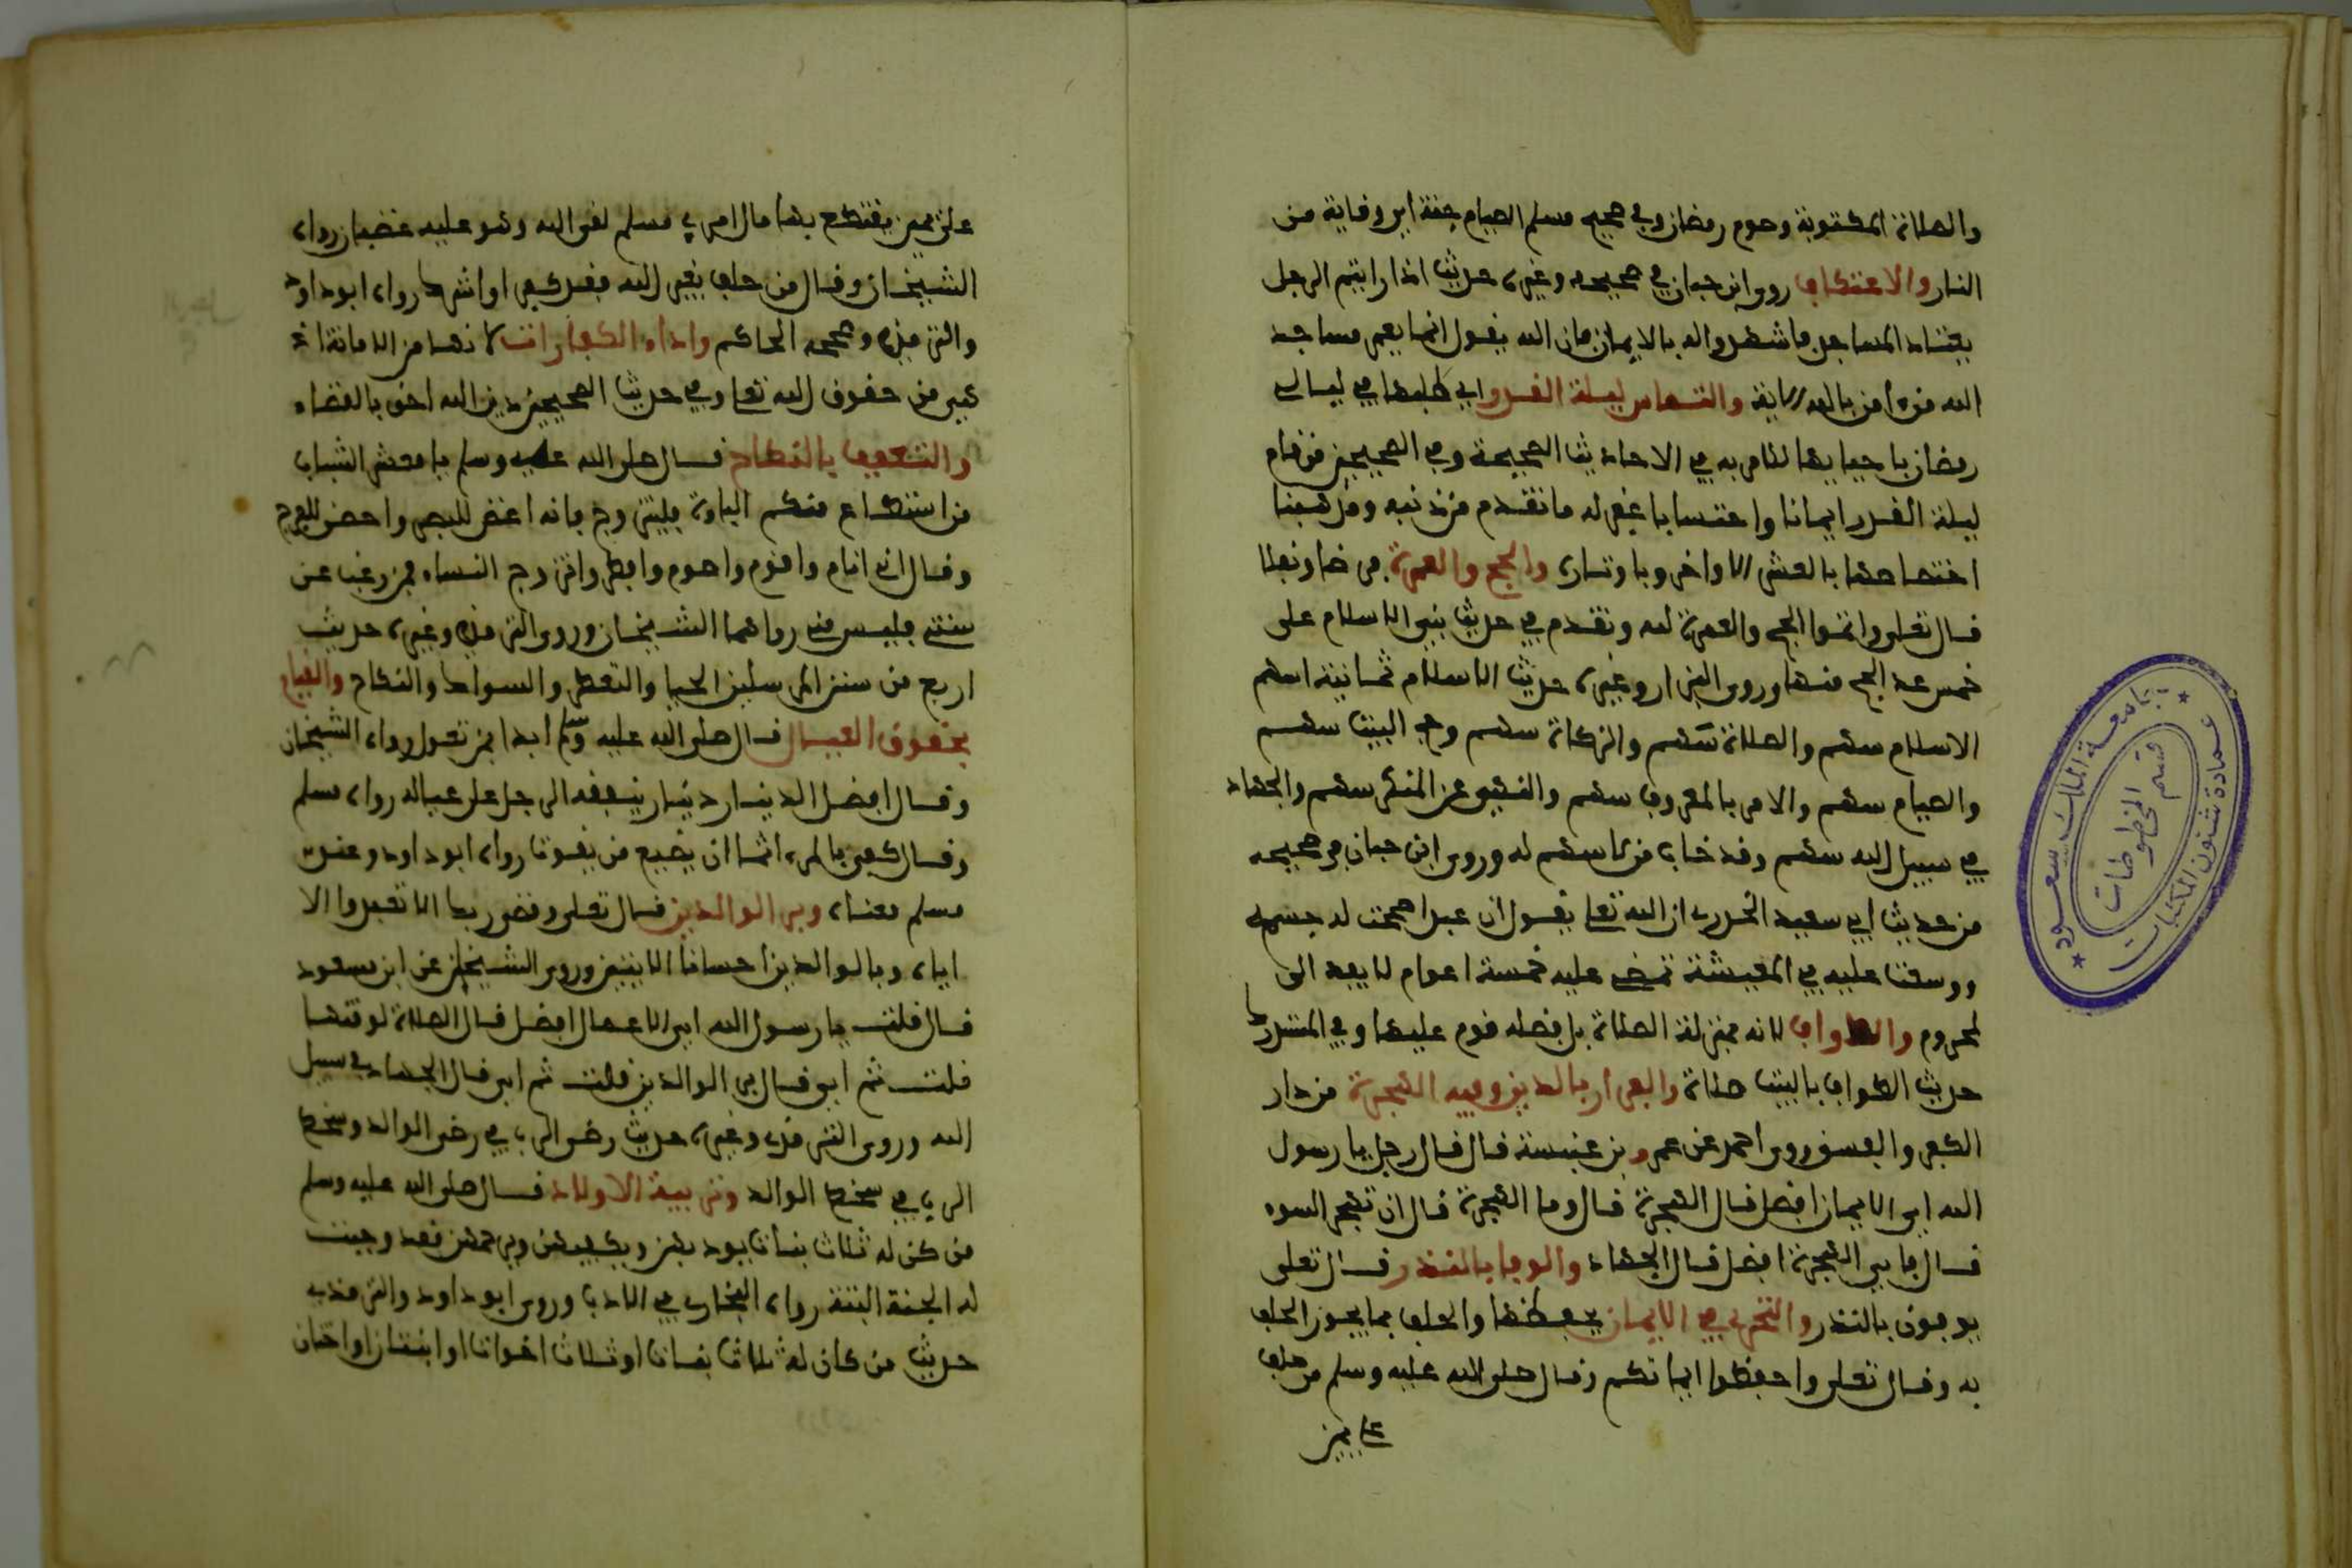 والصلاة المكتوبة وصوم رمضان وفي صحيح مسلم الصيام جنة اي وقاية من
النار والاعتكاف روى ابن حبان في صحيحه وغيره حديث اذا رايتم الرجل
يعتاد المساجد فاشهدوا له بالايمان فان الله يقول انما يعمر مساجد
الله من ءامن بالله الاية والتماس ليلة القدر اي طلبها في ليالي
رمضان باحيايها للامر به في الاحاديث الصحيحة وفي الصحيحين من قام
ليلة القدر ايمانا واحتسابا غفر له ما تقدم من ذنبه ومذهبنا
اختصاصها بالعشر الاواخر وباوتاره والحج والعمرة فرضا ونفلا
قال تعلى واتموا الحج والعمرة لله وتقدم في حديث بني الاسلام على
خمس عد الحج منها وروى البزار وغيره حديث الاسلام ثمانية اسهم
الاسلام سهم والصلاة سهم والزكاة سهم وحج البيت سهم
والصيام سهم والامر بالمعروف سهم والنهي عن المنكر سهم والجهاد
في سبيل الله سهم وقد خاب من لا سهم له وروى ابن حبان في صحيحه
من حديث ابي سعيد الخدري ان الله تعا يقول ان عبدا صححت له جسمه
ووسعت عليه في المعيشة تمضي عليه خمسة اعوام لا يعد الي
لمحروم والطواف لانه بمنزلة الصلاة بل افضله قوم عليها وفي المستدرك
حديث الطواف بالبيت صلاة والفرار بالدين وفيه الهجرة من دار
الكفر والفسق روى احمد عن عمرو بن عنبسة قال قال رجل يا رسول
الله اي الايمان افضل قال الهجرة قال وما الهجرة قال ان تهجر السوء
قال فاي الهجرة افضل قال الجهاد والوفا بالنذر قال تعلى
يوفون بالنذر والتحري في الايمان بحفظها والحلف بما يجوز الحلف
به وقال تعلى واحفظوا ايمانكم وقال صلى الله عليه وسلم من حلف
على يمين
على يمين يقتطع بها مال امرئ مسلم لقى الله وهو عليه غضبان رواه
الشيخان وقال من حلف بغير الله فقد كفر او اشرك رواه ابو داود
والترمذي وصححه الحاكم واداء الكفارات لانها من الامانة اذ
هي من حقوق الله تعا وفي حديث الصحيحين دين الله احق بالقضاء
والتعفف بالنكاح قال صلى الله عليه وسلم يا معشر الشباب
من استطاع منكم الباءة فليتزوج فانه اغض للبصر واحصن للفرج
وقال اني انام واقوم واصوم وافطر واتزوج النساء فمن رغب عن
سنتي فليس مني رواهما الشيخان وروى الترمذي وغيره حديث
اربع من سنن المرسلين الحيا والتعطر والسواك والنكاح والقيام
بحقوق العيال قال صلى الله عليه وسلم ابدا بمن تعول رواه الشيخان
وقال افضل الدينار دينار ينفقه الرجل على عياله رواه مسلم
وقال كفى بالمرء اثما ان يضيع من يقوت رواه ابو داود وعند
مسلم معناه وبر الوالدين قال تعلى وقضى ربك الا تعبدوا الا
اياه وبالوالدين احسانا الايتين وروى الشيخان عن ابن مسعود
قال قلت يا رسول الله اي الاعمال افضل قال الصلاة لوقتها
قلت ثم اي قال بر الوالدين قلت ثم اي قال الجهاد في سبيل
الله وروى الترمذي وغيره حديث رضى الرب في رضى الوالد وسخط
الرب في سخط الوالد وتربية الاولاد قال صلى الله عليه وسلم
من كن له ثلاث بنات يودبهن ويكفيهن ويرحمهن فقد وجبت
له الجنة البتة رواه البخاري في الادب وروى ابو داود والترمذي
حديث من كان له ثلاث بنات او ثلاث اخوات او ابنتان او اختان
جامعة الملك سعود
عمادة شئون المكتبات
قسم المخطوطات